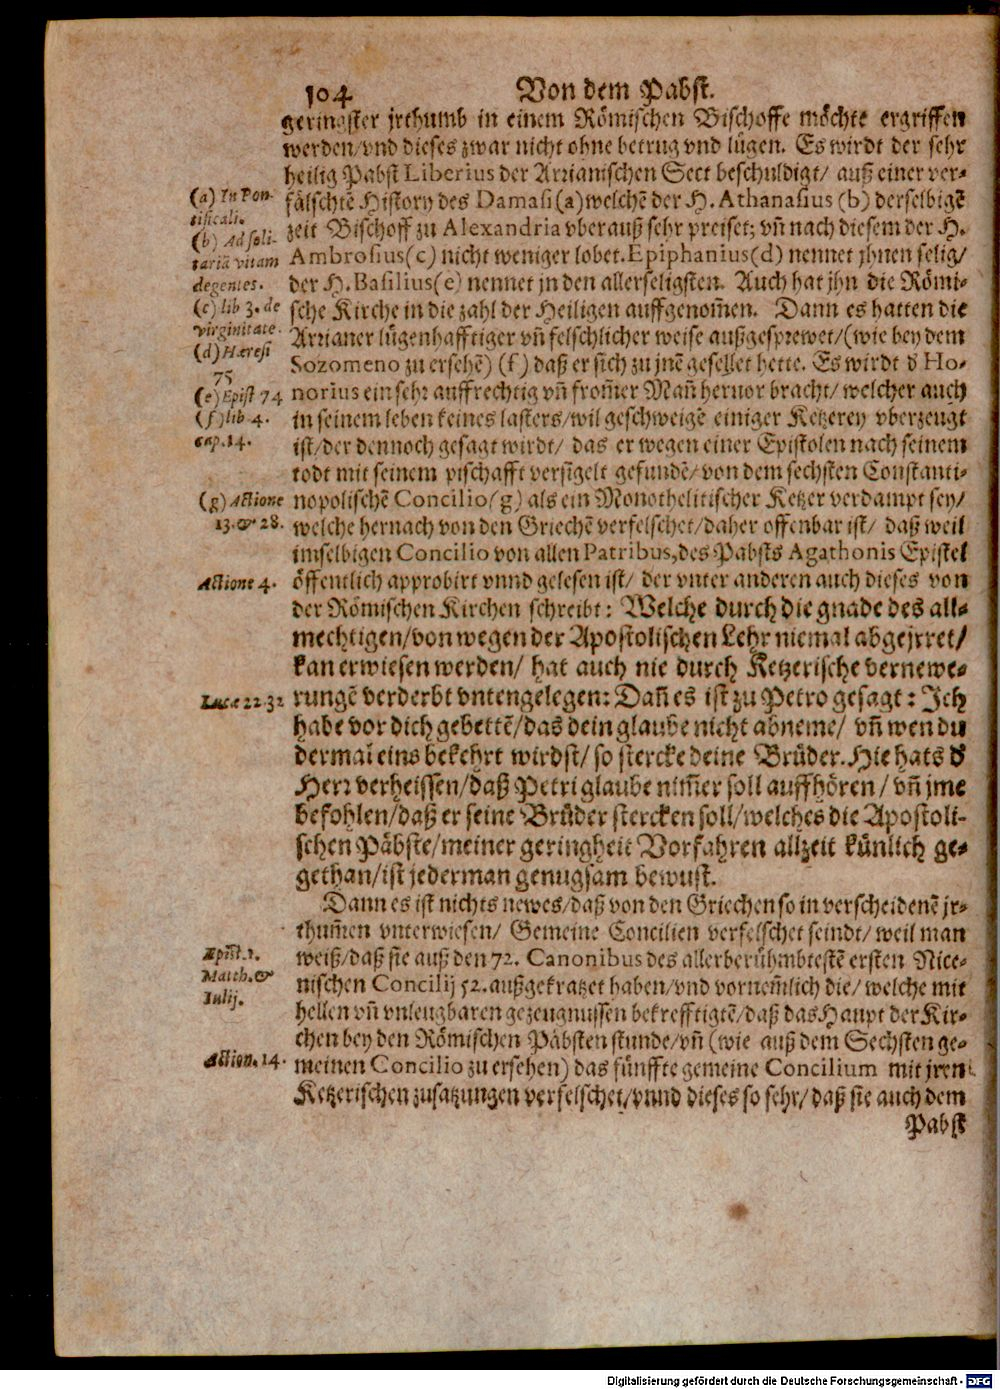 104 Von dem Pabst.
geringster jrthumb in einem Römischen Bischoffe möchte ergriffen
werden/vnd dieses zwar nicht ohne betrug vnd lügen. Es wirdt der sehr
heilig Pabst Liberius der Arrianischen Sect beschuldigt/ auß einer ver-
fälschtē History des Damasi (a) welchē der H. Athanasius (b) derselbigē
zeit Bischoff zu Alexandria vberauß sehr preiset; vñ nach diesem der H.
Ambrosius (c) nicht weniger lobet. Epiphanius (d) nennet jhnen selig/
der H. Basilius (e) nennet jn den allerseligsten. Auch hat jhn die Römi-
sche Kirche in die zahl der Heiligen auffgenom̄en. Dann es hatten die
Arrianer lügenhafftiger vñ felschlicher weise außgesprewet/(wie bey dem
Sozomeno zu ersehē) (f) daß er sich zu jnē gesellet hette. Es wirdt d' Ho-
norius ein sehr auffrechtig vñ from̄er Mañ heruor bracht/ welcher auch
in seinem leben keines lasters/wil geschweigē einiger Ketzerey vberzeugt
ist/der dennoch gesagt wirdt/ das er wegen einer Epistolen nach seinem
todt mit seinem pischafft versigelt gefundē/von dem sechsten Constanti-
nopolischē Concilio (g) als ein Monothelitischer Ketzer verdampt sey/
welche hernach von den Griechē verfelschet/daher offenbar ist/ daß weil
imselbigen Concilio von allen Patribus, des Pabsts Agathonis Epistel
öffentlich approbirt vnnd gelesen ist/ der vnter anderen auch dieses von
der Römischen Kirchen schreibt: Welche durch die gnade des all-
mechtigen/von wegen der Apostolischen Lehr niemal abgejrret/
kan erwiesen werden/ hat auch nie durch Ketzerische vernewe-
rungē verderbt vntengelegen: Dañ es ist zu Petro gesagt: Ich
habe vor dich gebettē/das dein glaube nicht abneme/ vñ wen du
dermal eins bekehrt wirdst/ so stercke deine Brüder. Hie hats d'
Herr verheissen/daß Petri glaube nim̄er soll auffhören/ vñ jme
befohlen/daß er seine Brüder stercken soll/welches die Apostoli-
schen Päbste/meiner geringheit Vorfahren allzeit künlich ge-
gethan/ist jederman genugsam bewust.
Dann es ist nichts newes/daß von den Griechen so in verscheidenē jr-
thum̄en vnterwiesen/ Gemeine Concilien verfelschet seindt/ weil man
weiß/daß sie auß den 72. Canonibus des allerberühmbtestē ersten Nice-
nischen Concilij 52. außgekratzet haben/vnd vornem̄lich die/ welche mit
hellen vñ vnleugbaren gezeugnussen bekrefftigtē/daß das Haupt der Kir-
chen bey den Römischen Päbsten stunde/vñ (wie auß dem Sechsten ge-
meinen Concilio zu ersehen) das fünffte gemeine Concilium mit jren
Ketzerischen zusatzungen verfelschet/vnnd dieses so sehr/ daß sie auch dem
Pabst
(a) In Pon-
tificali.
(b) Ad soli-
tariā vitam
degentes.
(c) lib 3. de
virginitate.
(d) Hæresi
75
(e) Epist 74
(f) lib 4.
cap. 14.
(g) Actione
13. & 28.
Actione 4.
Lucæ 22 32
Epist. 1.
March. &
Iulij.
Action. 14.
Digitalisierung gefördert durch die Deutsche Forschungsgemeinschaft - DFG